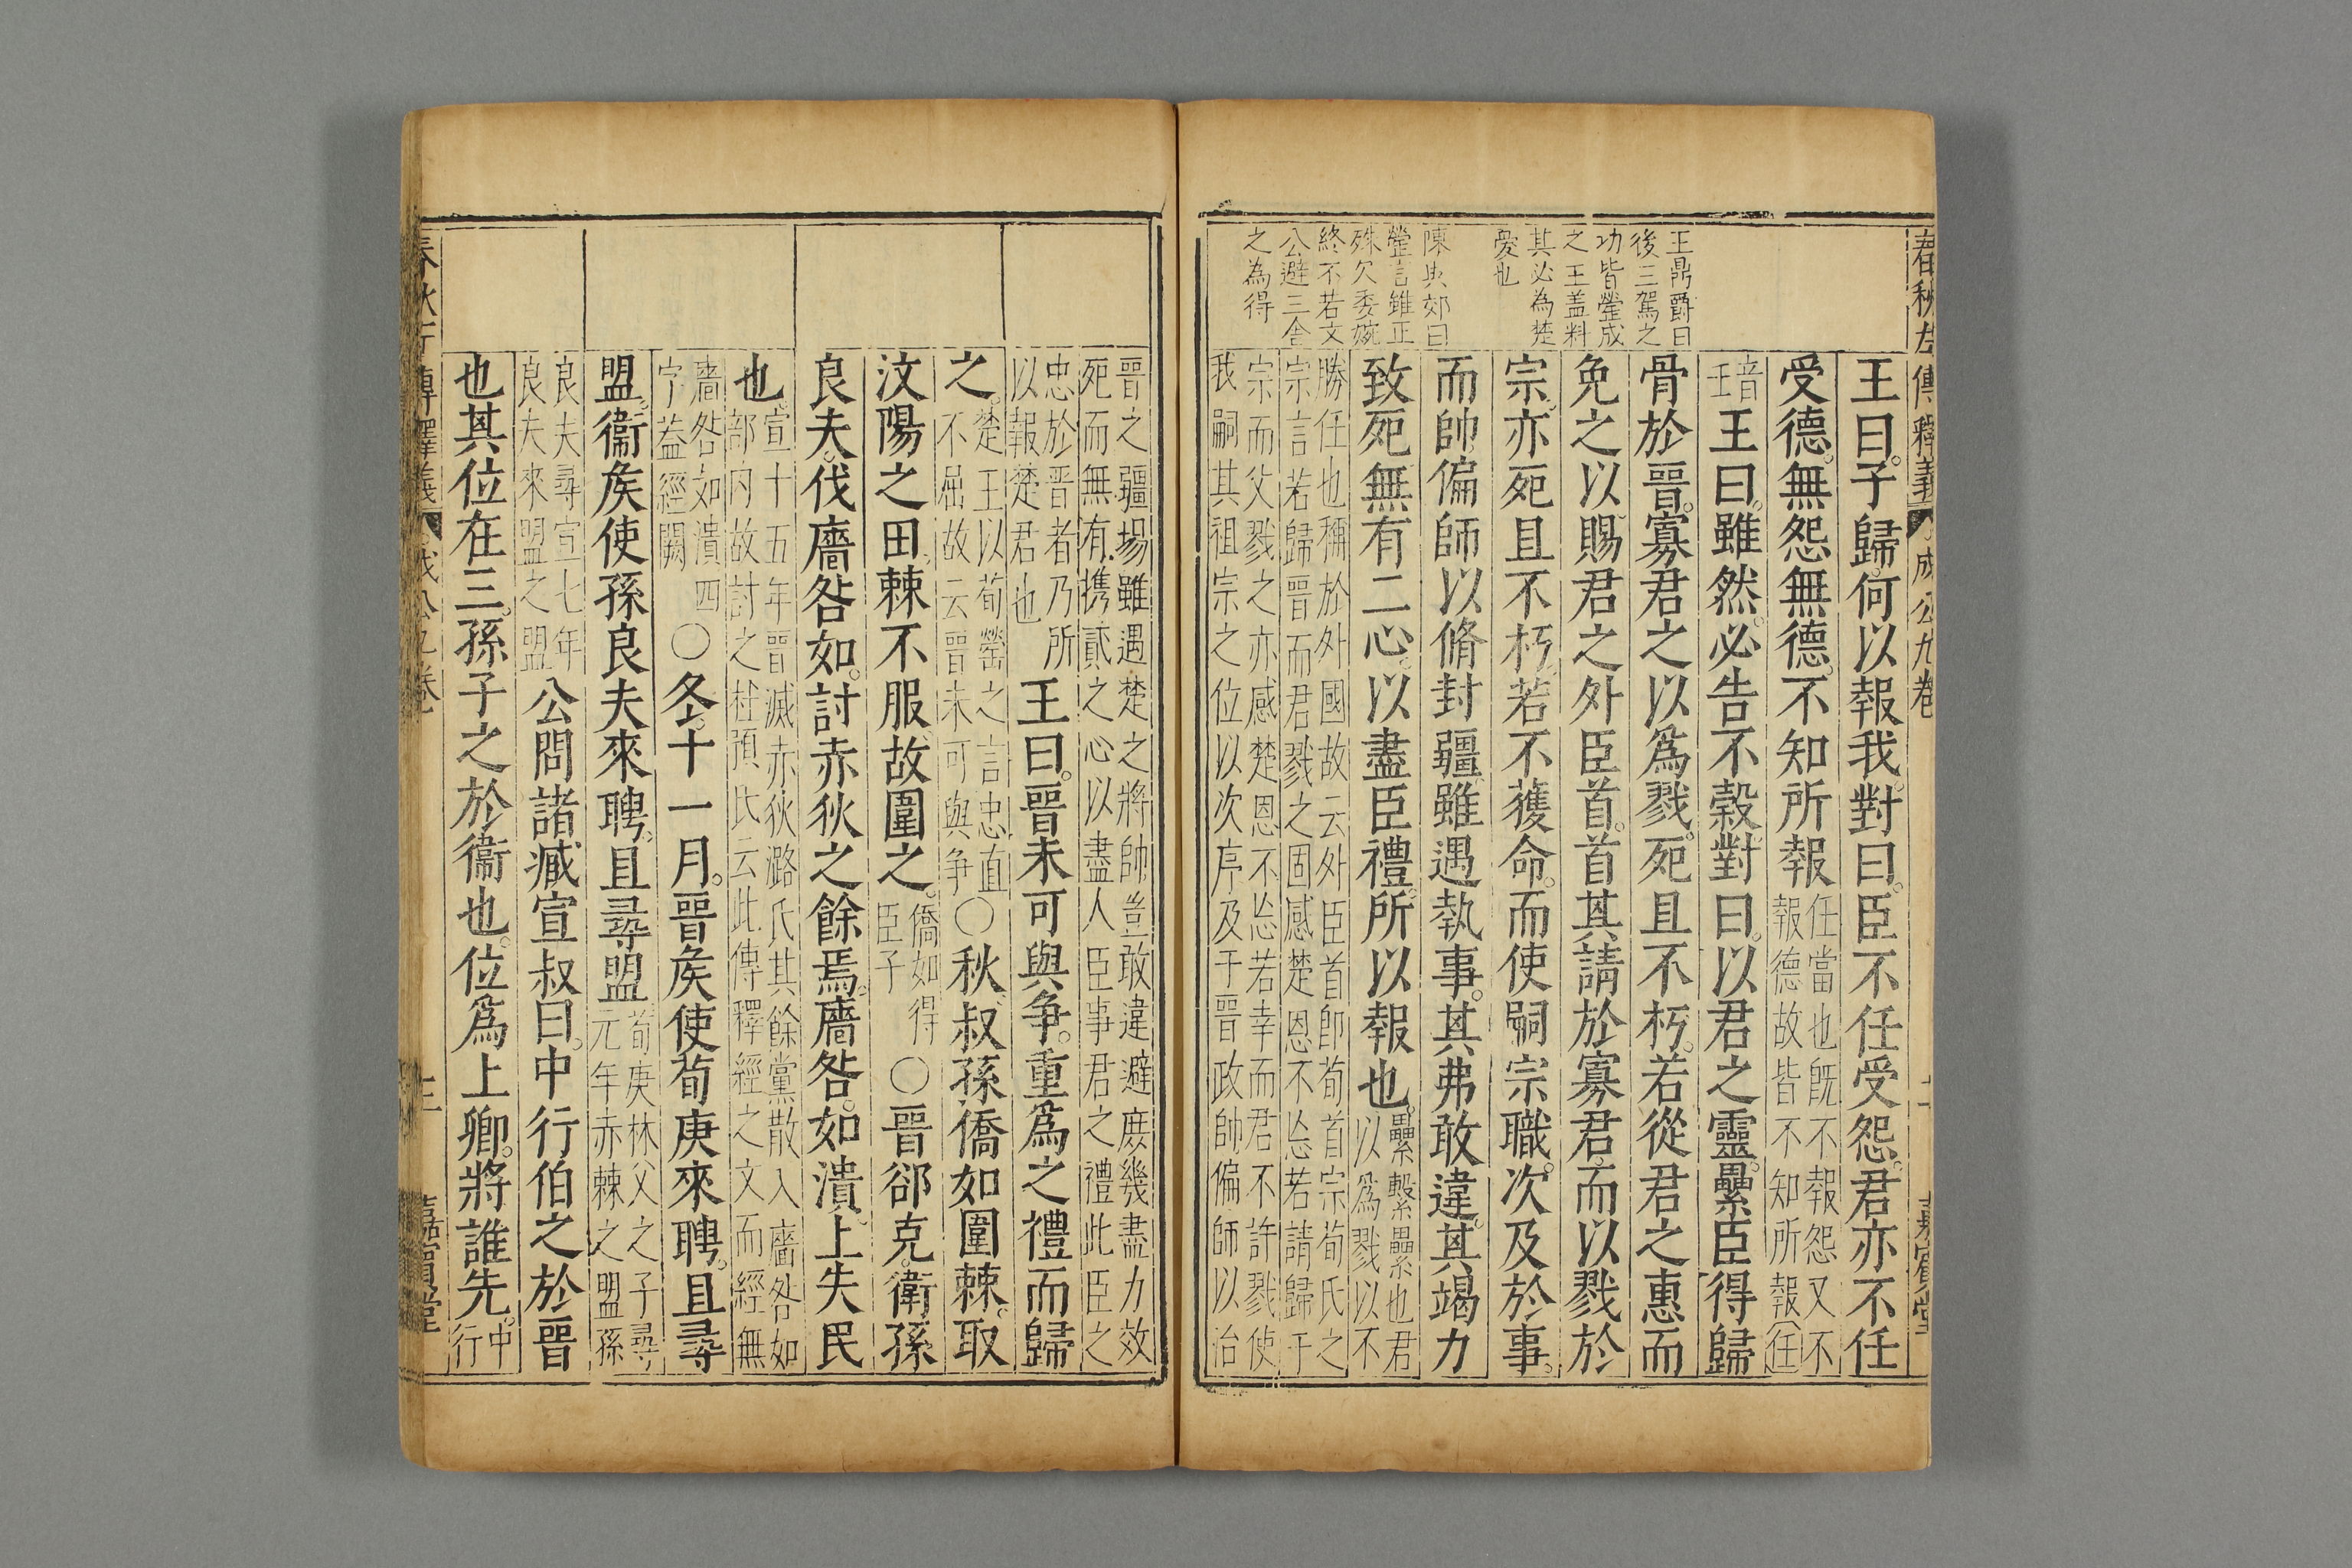 春秋左傳釋義
成公九卷
王曰子歸何以報我對曰臣不任受怨君亦不任
受德無怨無德不知所報
任當也既不報怨又不
報德故皆不知所報任
音
壬
王曰雖然必告不穀對曰以君之靈纍臣得歸
骨於晉寡君之以爲戮死且不朽若從君之惠而
免之以賜君之外臣首首其請於寡君而以戮於
宗亦死且不朽若不獲命而使嗣宗職次及於事
而帥偏師以脩封疆雖遇執事其弗敢違其竭力
致死無有二心以盡臣禮所以報也
纍繫纍也君
以爲戮以不
勝任也稱於外國故云外臣首卽荀首宗荀氏之
宗言若歸晉而君戮之固感楚恩不忘若請歸于
宗而父戮之亦感楚恩不忘若幸而君不許戮使
我嗣其祖宗之位以次序及于晉政帥偏師以治
王鼎爵曰
後三駕之
功皆罃成
之王盖料
其必為楚
憂也
陳與郊曰
罃言雖正
殊欠委婉
終不若文
公避三舍
之為得
晉之疆埸雖遇楚之將帥豈敢違避庶幾盡力效
死而無有携貳之心以盡人臣事君之禮此臣之
忠於晉者乃所
以報楚君也
王曰晉未可與争重爲之禮而歸
之
楚王以荀罃之言忠直
不屈故云晉未可與争
○秋叔孫僑如圍棘取
汶陽之田棘不服故圍之
僑如得
臣子
○晉郤克衛孫
良夫伐廧咎如討赤狄之餘焉廧咎如潰上失民
也
宣十五年晉滅赤狄潞氏其餘黨散入廧咎如
部内故討之杜預氏云此傳釋經之文而經無
廧咎如潰四
字益經闕
○冬十一月晉矦使荀庚來聘且尋
盟衞矦使孫良夫來聘且尋盟
荀庚林父之子尋
元年赤棘之盟孫
良夫尋宣七年
良夫來盟之盟
公問諸臧宣叔曰中行伯之於晉
也其位在三孫子之於衞也位爲上卿將誰先
中
行